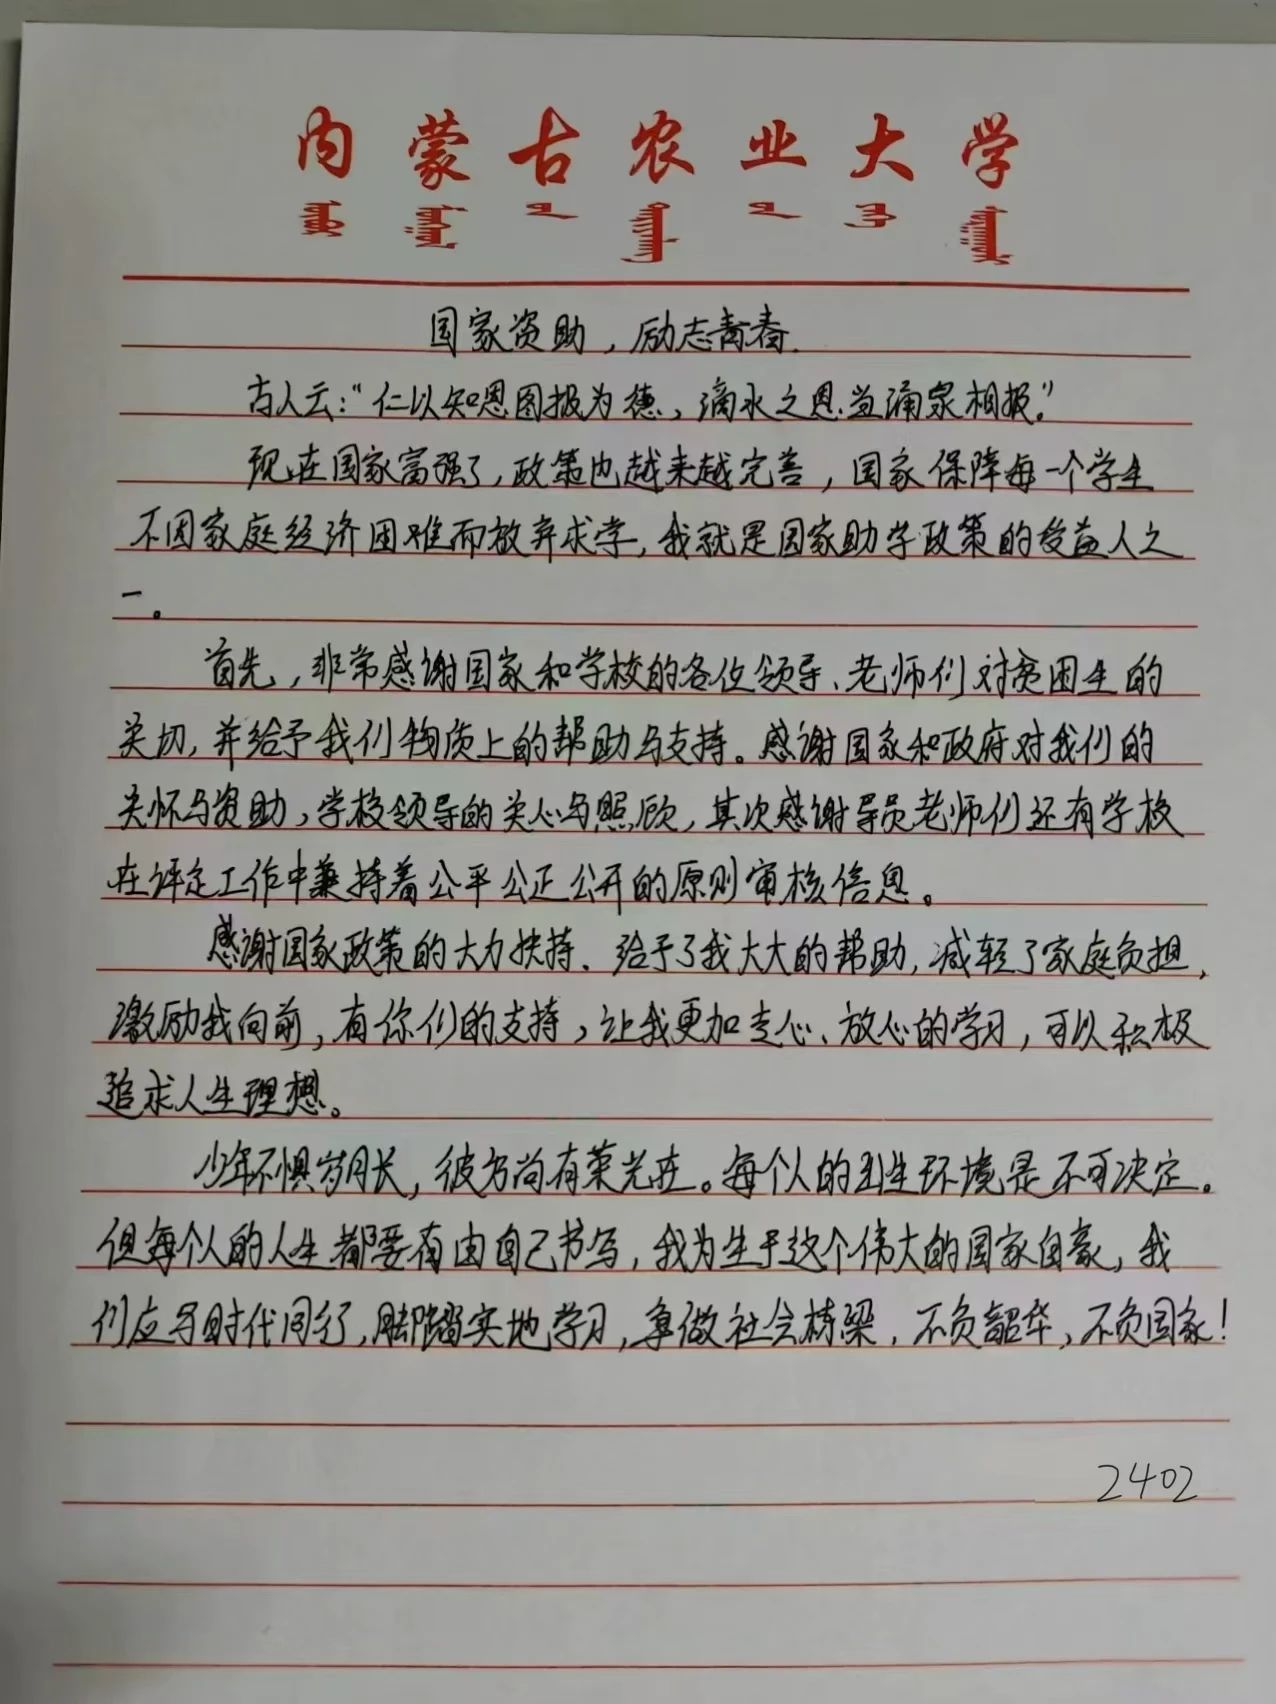 内蒙古农业大学
国家资助，励志青春.
古人云：“仁以知恩图报为德，滴水之恩当涌泉相报。”
现在国家富强了，政策也越来越完善，国家保障每一个学生
不因家庭经济困难而放弃求学，我就是国家助学政策的受益人之
一。
首先，非常感谢国家和学校的各位领导、老师们对贫困生的
关切，并给予我们物质上的帮助与支持。感谢国家和政府对我们的
关怀与资助，学校领导的关心与照顾，其次感谢导员老师们还有学校
在评定工作中秉持着公平公正公开的原则审核信息。
感谢国家政策的大力扶持、给予了我大大的帮助，减轻了家庭负担，
激励我向前，有你们的支持，让我更加专心、放心的学习，可以积极
追求人生理想。
少年不惧岁月长，彼方尚有荣光在。每个人的出生环境是不可决定。
但每个人的人生都要有由自己书写，我为生于这个伟大的国家自豪，我
们应与时代同行，脚踏实地学习，争做社会栋梁，不负韶华，不负国家！
2402